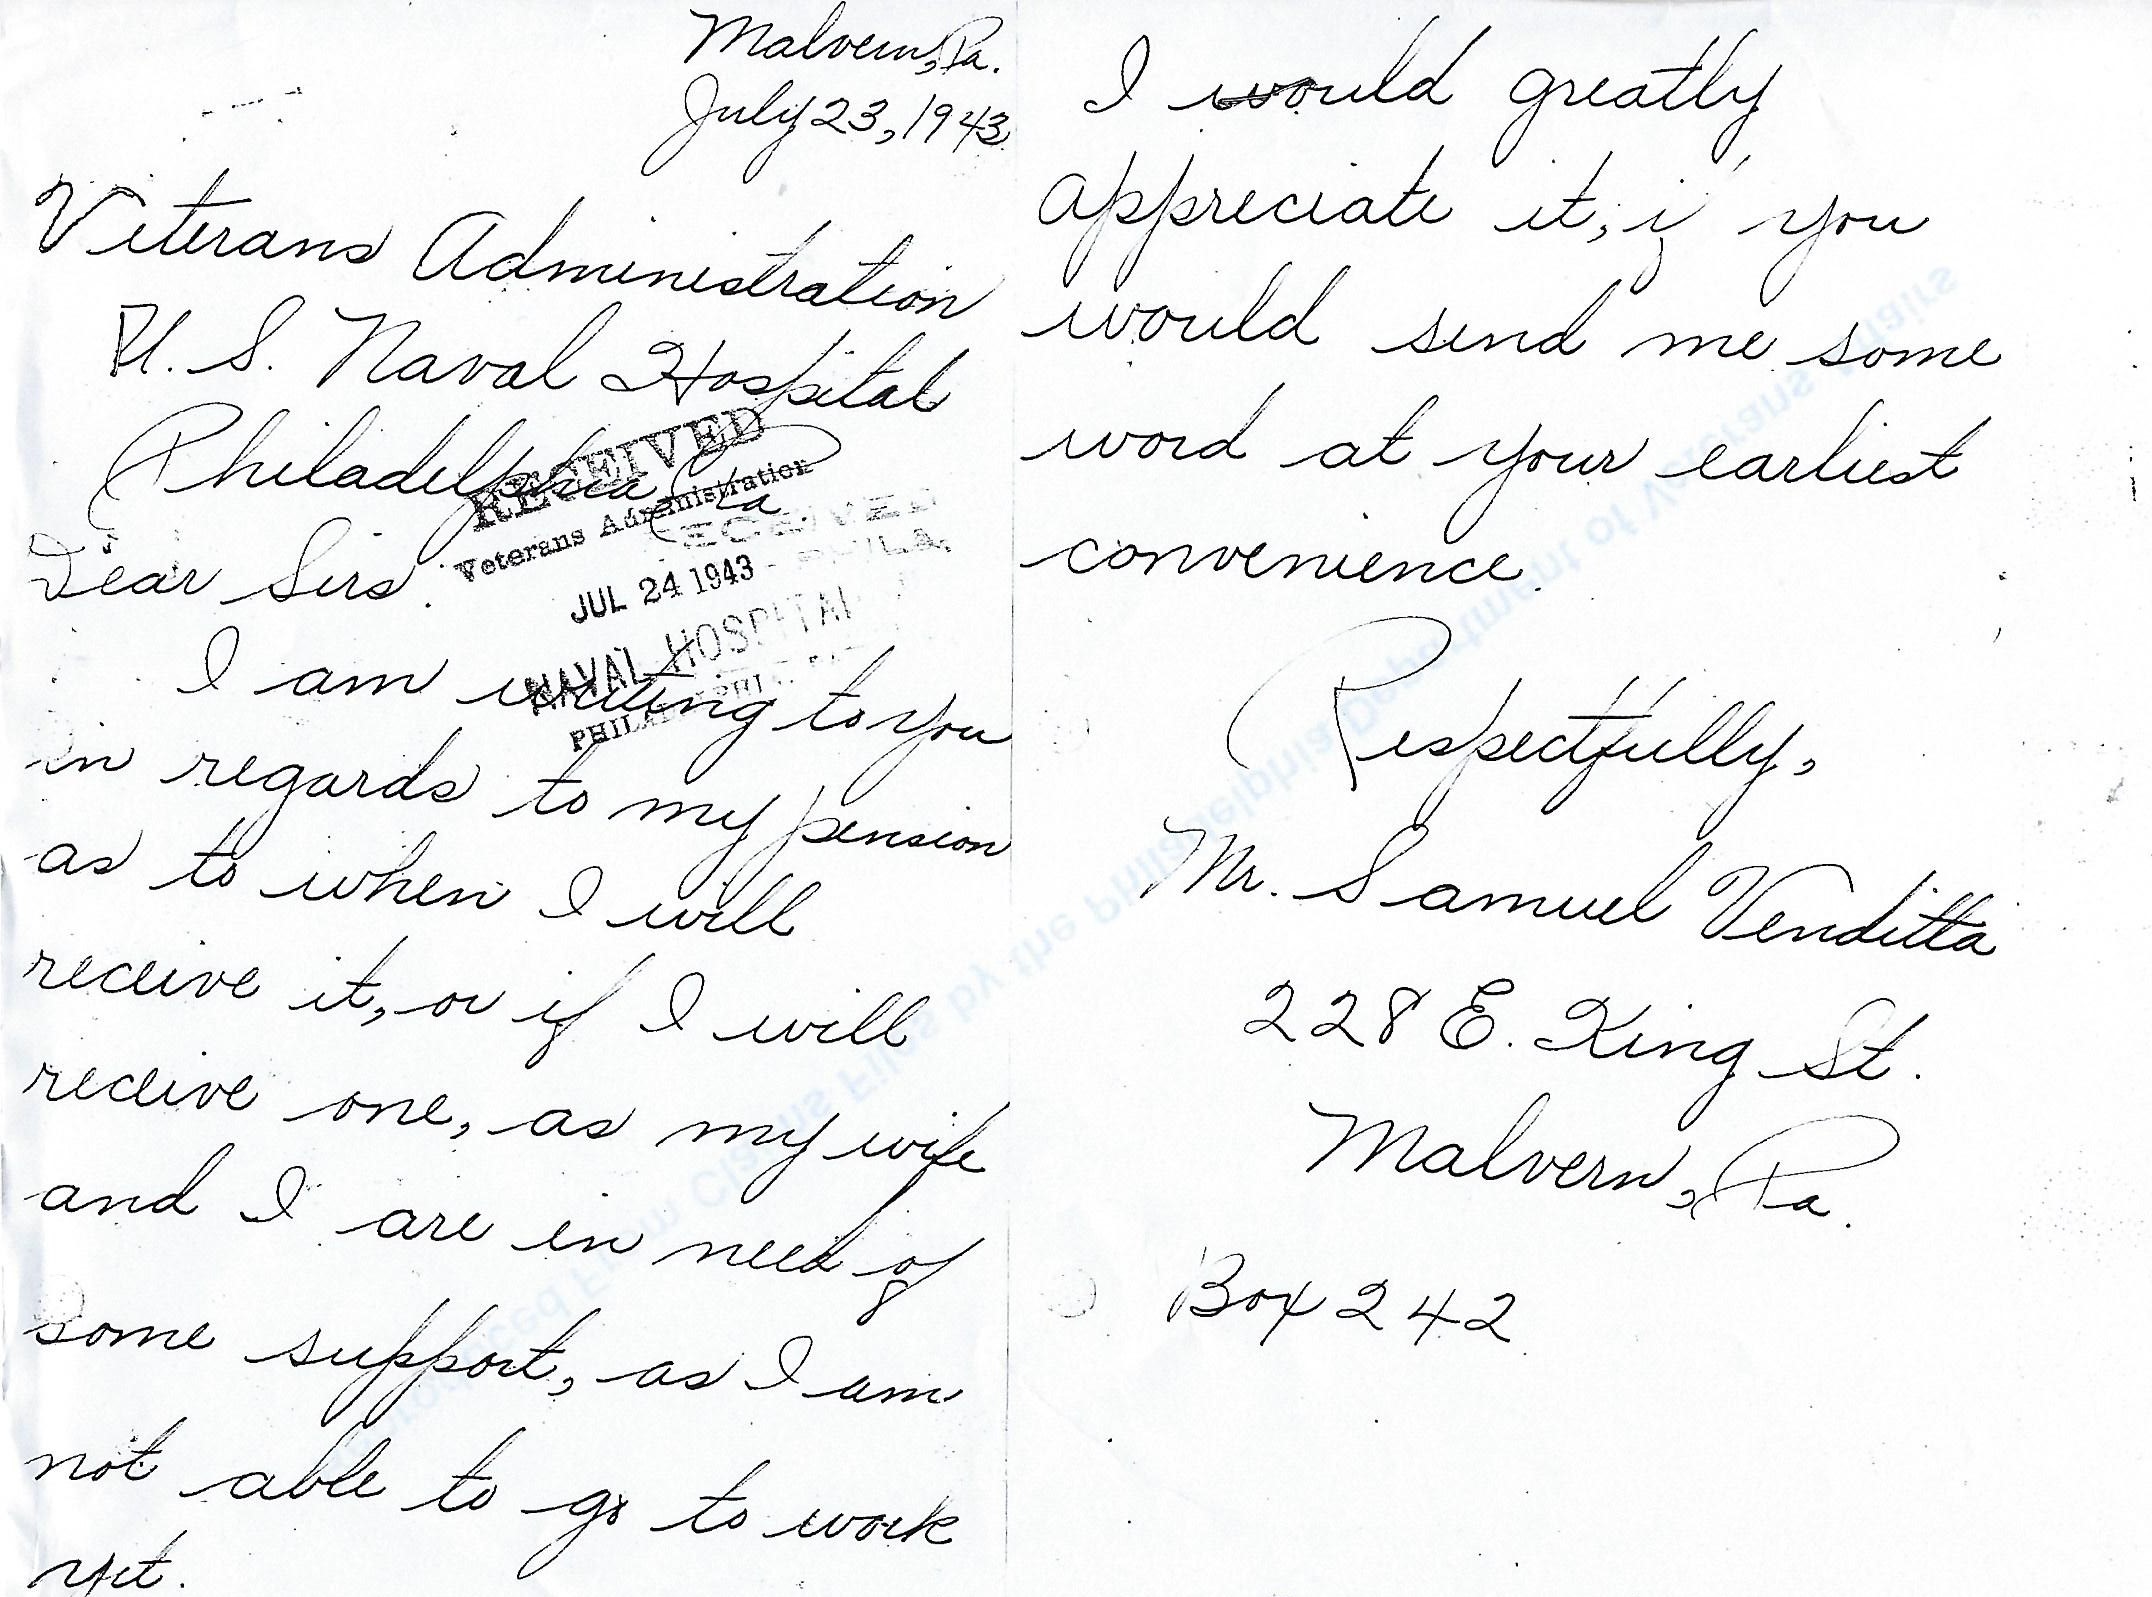 Malvern, Pa.
July 23, 1943
Veterans Administration
U. S. Naval Hospital
Philadelphia Pa
RECEIVED
Veterans Administration
JUL 24 1943
NAVAL HOSPITAL
Dear Sirs:
I am writing to you
in regards to my pension
as to when I will
receive it, or if I will
receive one, as my wife
and I are in need of
some support, as I am
not able to go to work
yet.
I would greatly
appreciate it, if you
would send me some
word at your earliest
convenience.
Respectfully,
Mr. Samuel Venditta
228 E. King St.
Malvern, Pa.
Box 242